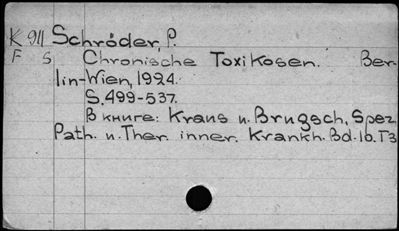 K 911 Schröder, P.
F S Chronische Toxikosen. Ber-
lin-Wien, 1924.
S. 499-537.
В книге: Kraus u. Brugsch, Spez.
Path. u. Ther. inner. Krankh. Bd. 10. T3